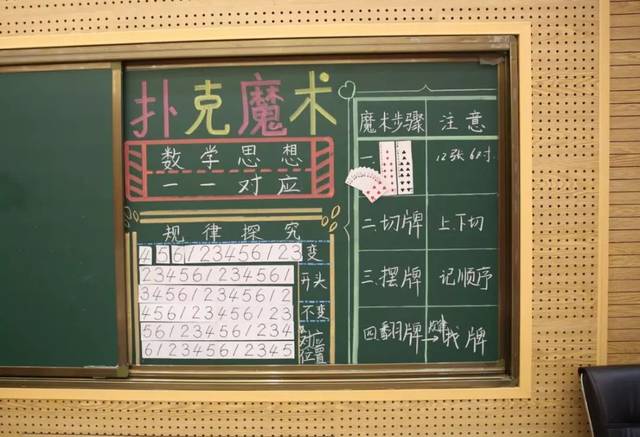 扑克魔术
数学思想
一一对应
规律探究
4 5 6 1 2 3 4 5 6 1 2 3 变
2 3 4 5 6 1 2 3 4 5 6 1 开头
3 4 5 6 1 2 3 4 5 6 1 2
4 5 6 1 2 3 4 5 6 1 2 3 不变
5 6 1 2 3 4 5 6 1 2 3 4 对应
6 1 2 3 4 5 6 1 2 3 4 5 位置
魔术步骤 注意
一. 12张 6对
二.切牌 上下切
三.摆牌 记顺序
四.翻牌 找牌